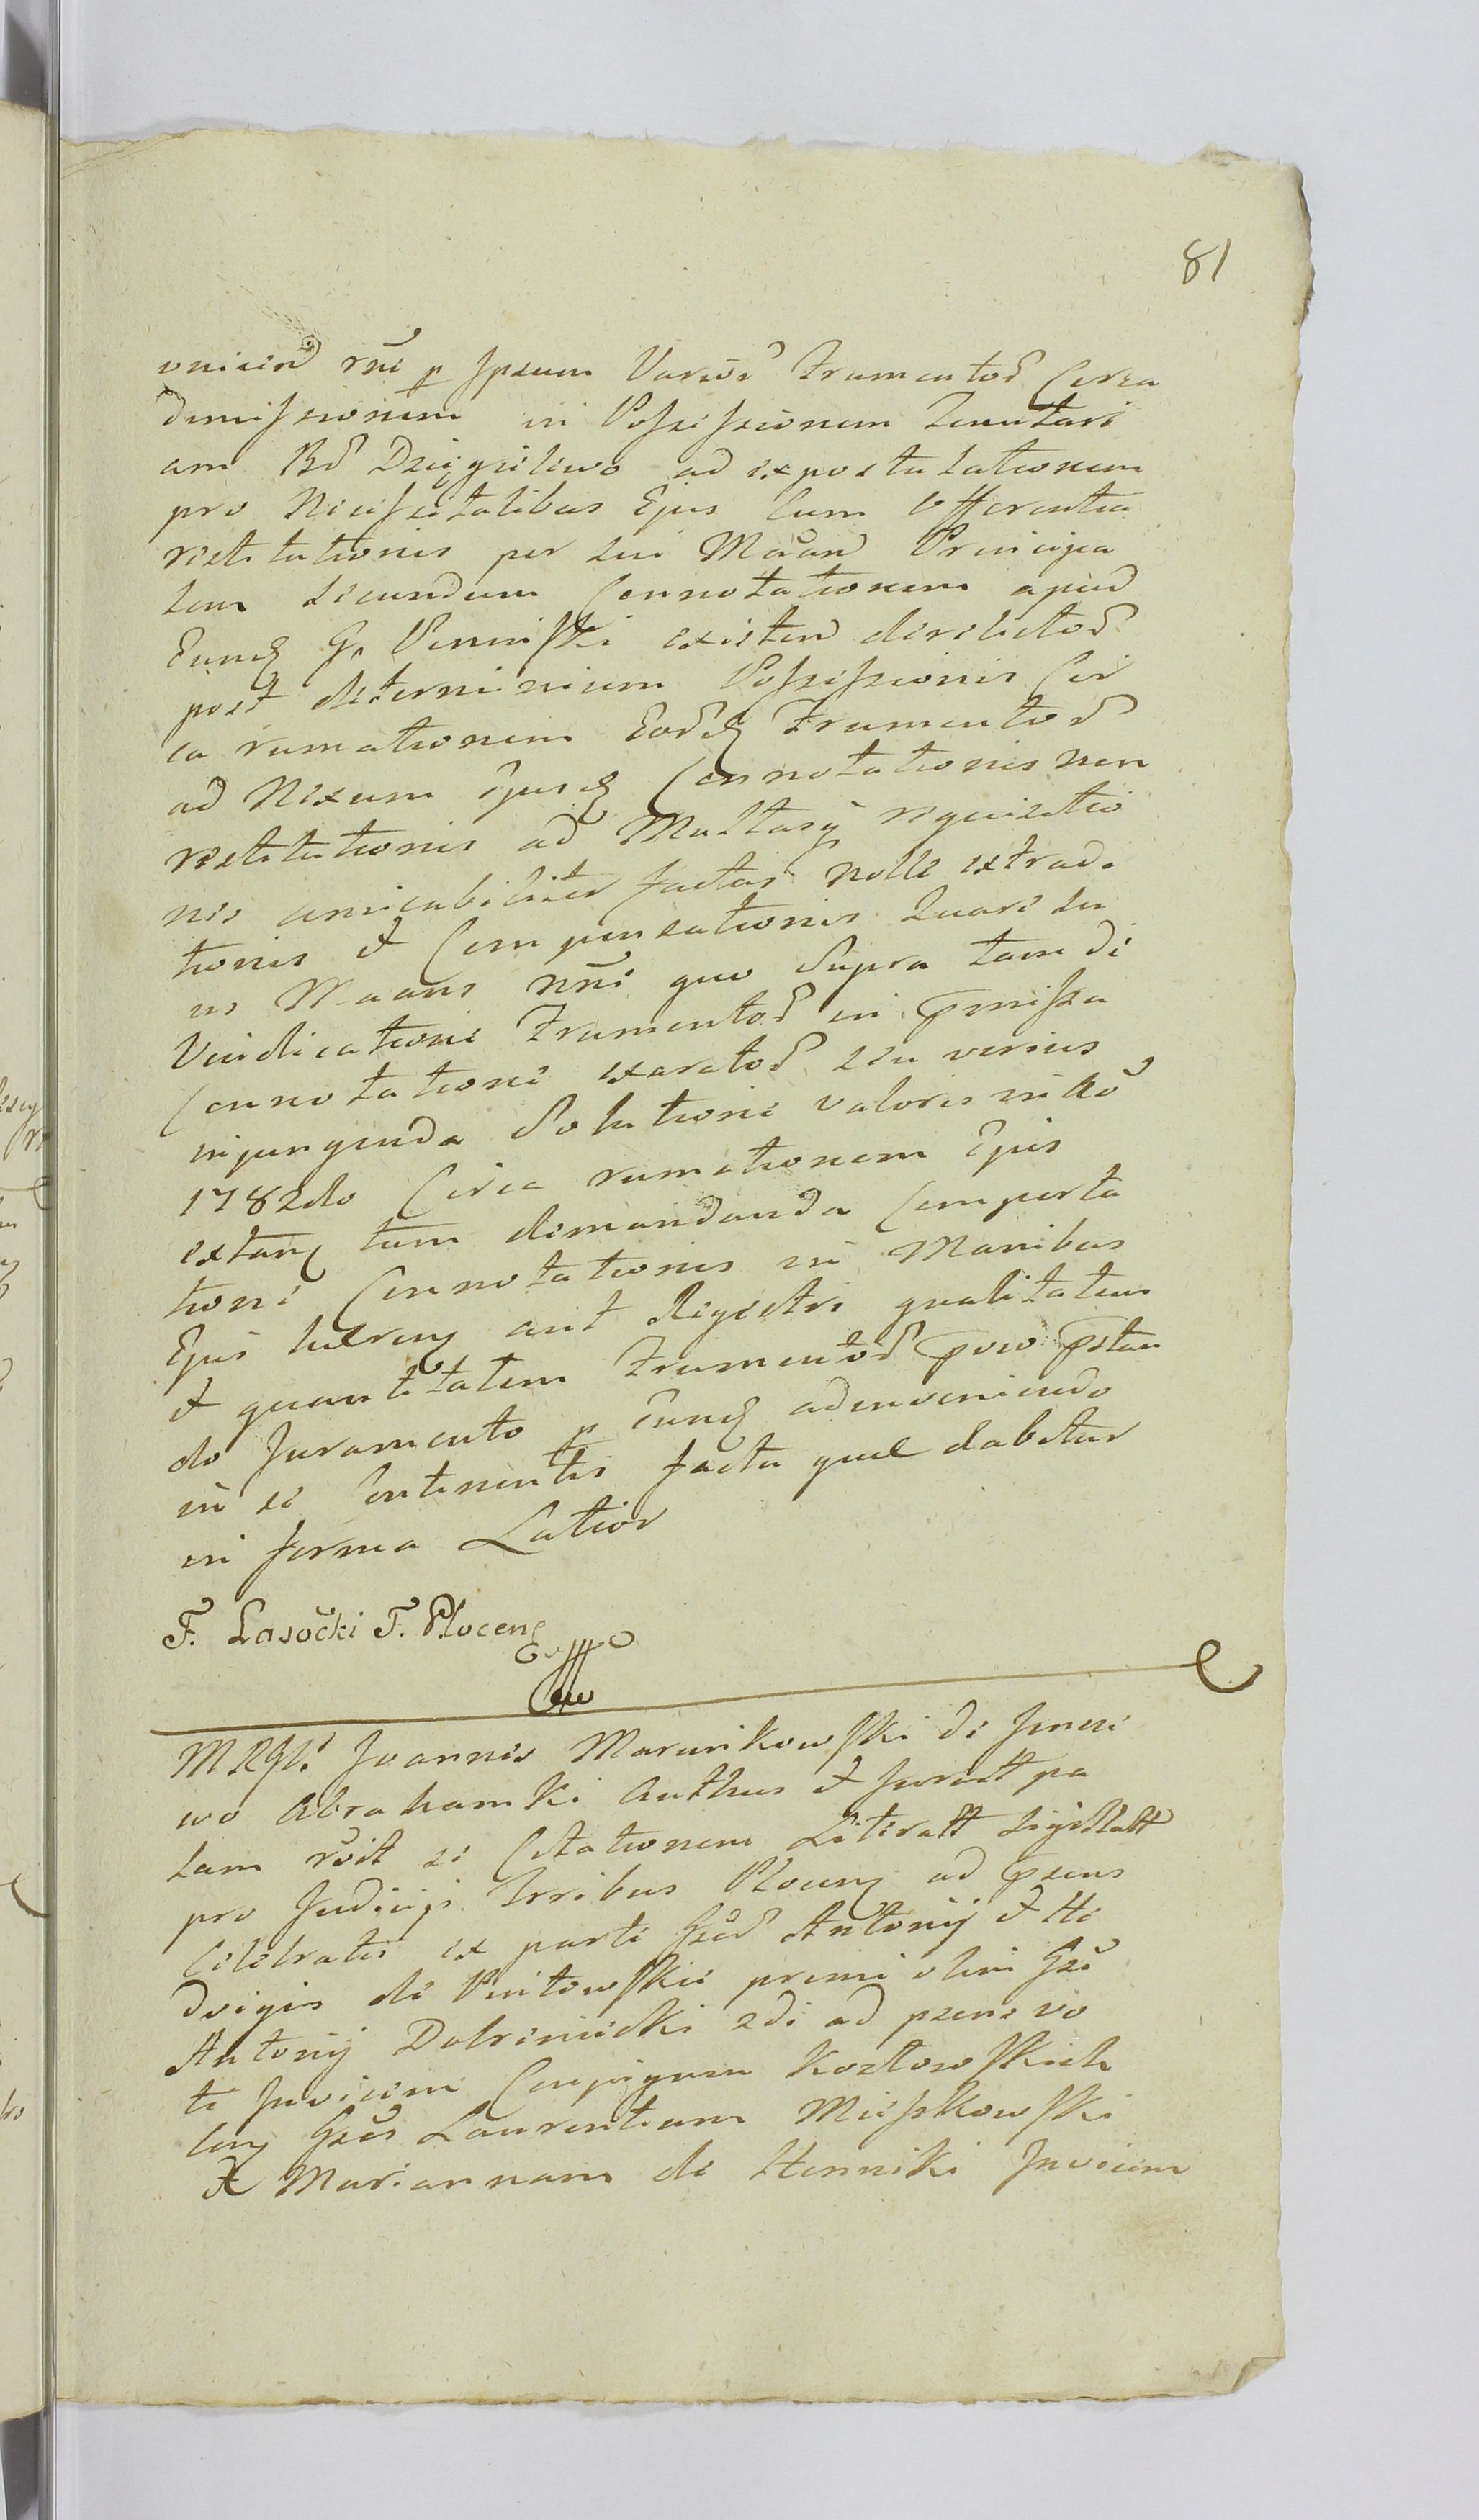 81
rñi p Ipsum Varior Frumentor Circa
dimissionem in Possessionem Tenutari
am Br Dzięgielewo ad expostulationem
pro Necessitatibus Ejus Cum offerentia
restitutionis per sui Principa
lem secundum Connotationem apud
Eundq G. existend derelictor
post determinium Possessionis Cir
ca rumationem Eordq Frumentor
ad Nexum Ejusdq Connotationis non
restitutionis ad Multasq requisitio
nes amicabiliter factas nolle extradi
tionis et Compensationis Quare su
us Maans nñi quo Supra tam de
Vindicatione Frumentor in pmissa
Connotatione exarator seu verius
injungenda Solutione valoris in Aõ
1782do Circa rumationem Ejus
extanq tum demandanda Comporta
tione Connotationis in Manibus
Ejus aut Regestri qualitatem
et quantitatem Frumentor pvio pstan
do Juramento p Eundq adinveniendo
in se Continentis facta quae dabitur
in forma Latior
F. Lasocki F. Plocen
MRGl. Joannes Marunkowski de
wo Abrahamki Authus et Jurat pa
lam rõit se Citationem Literatt Sigillatt
pro Judicijs Trribus Plocenq ad psens
Celebratis ex parte Gsor Antonij et He
dvigis de primi olim Gsi
Antonij Dobrenieckki 2di ad psens vo
ti Invicem Conjugum Kozłowskich
conq Gsos Laurentium Mieszkowski
et Mariannam de Henniki Invicem